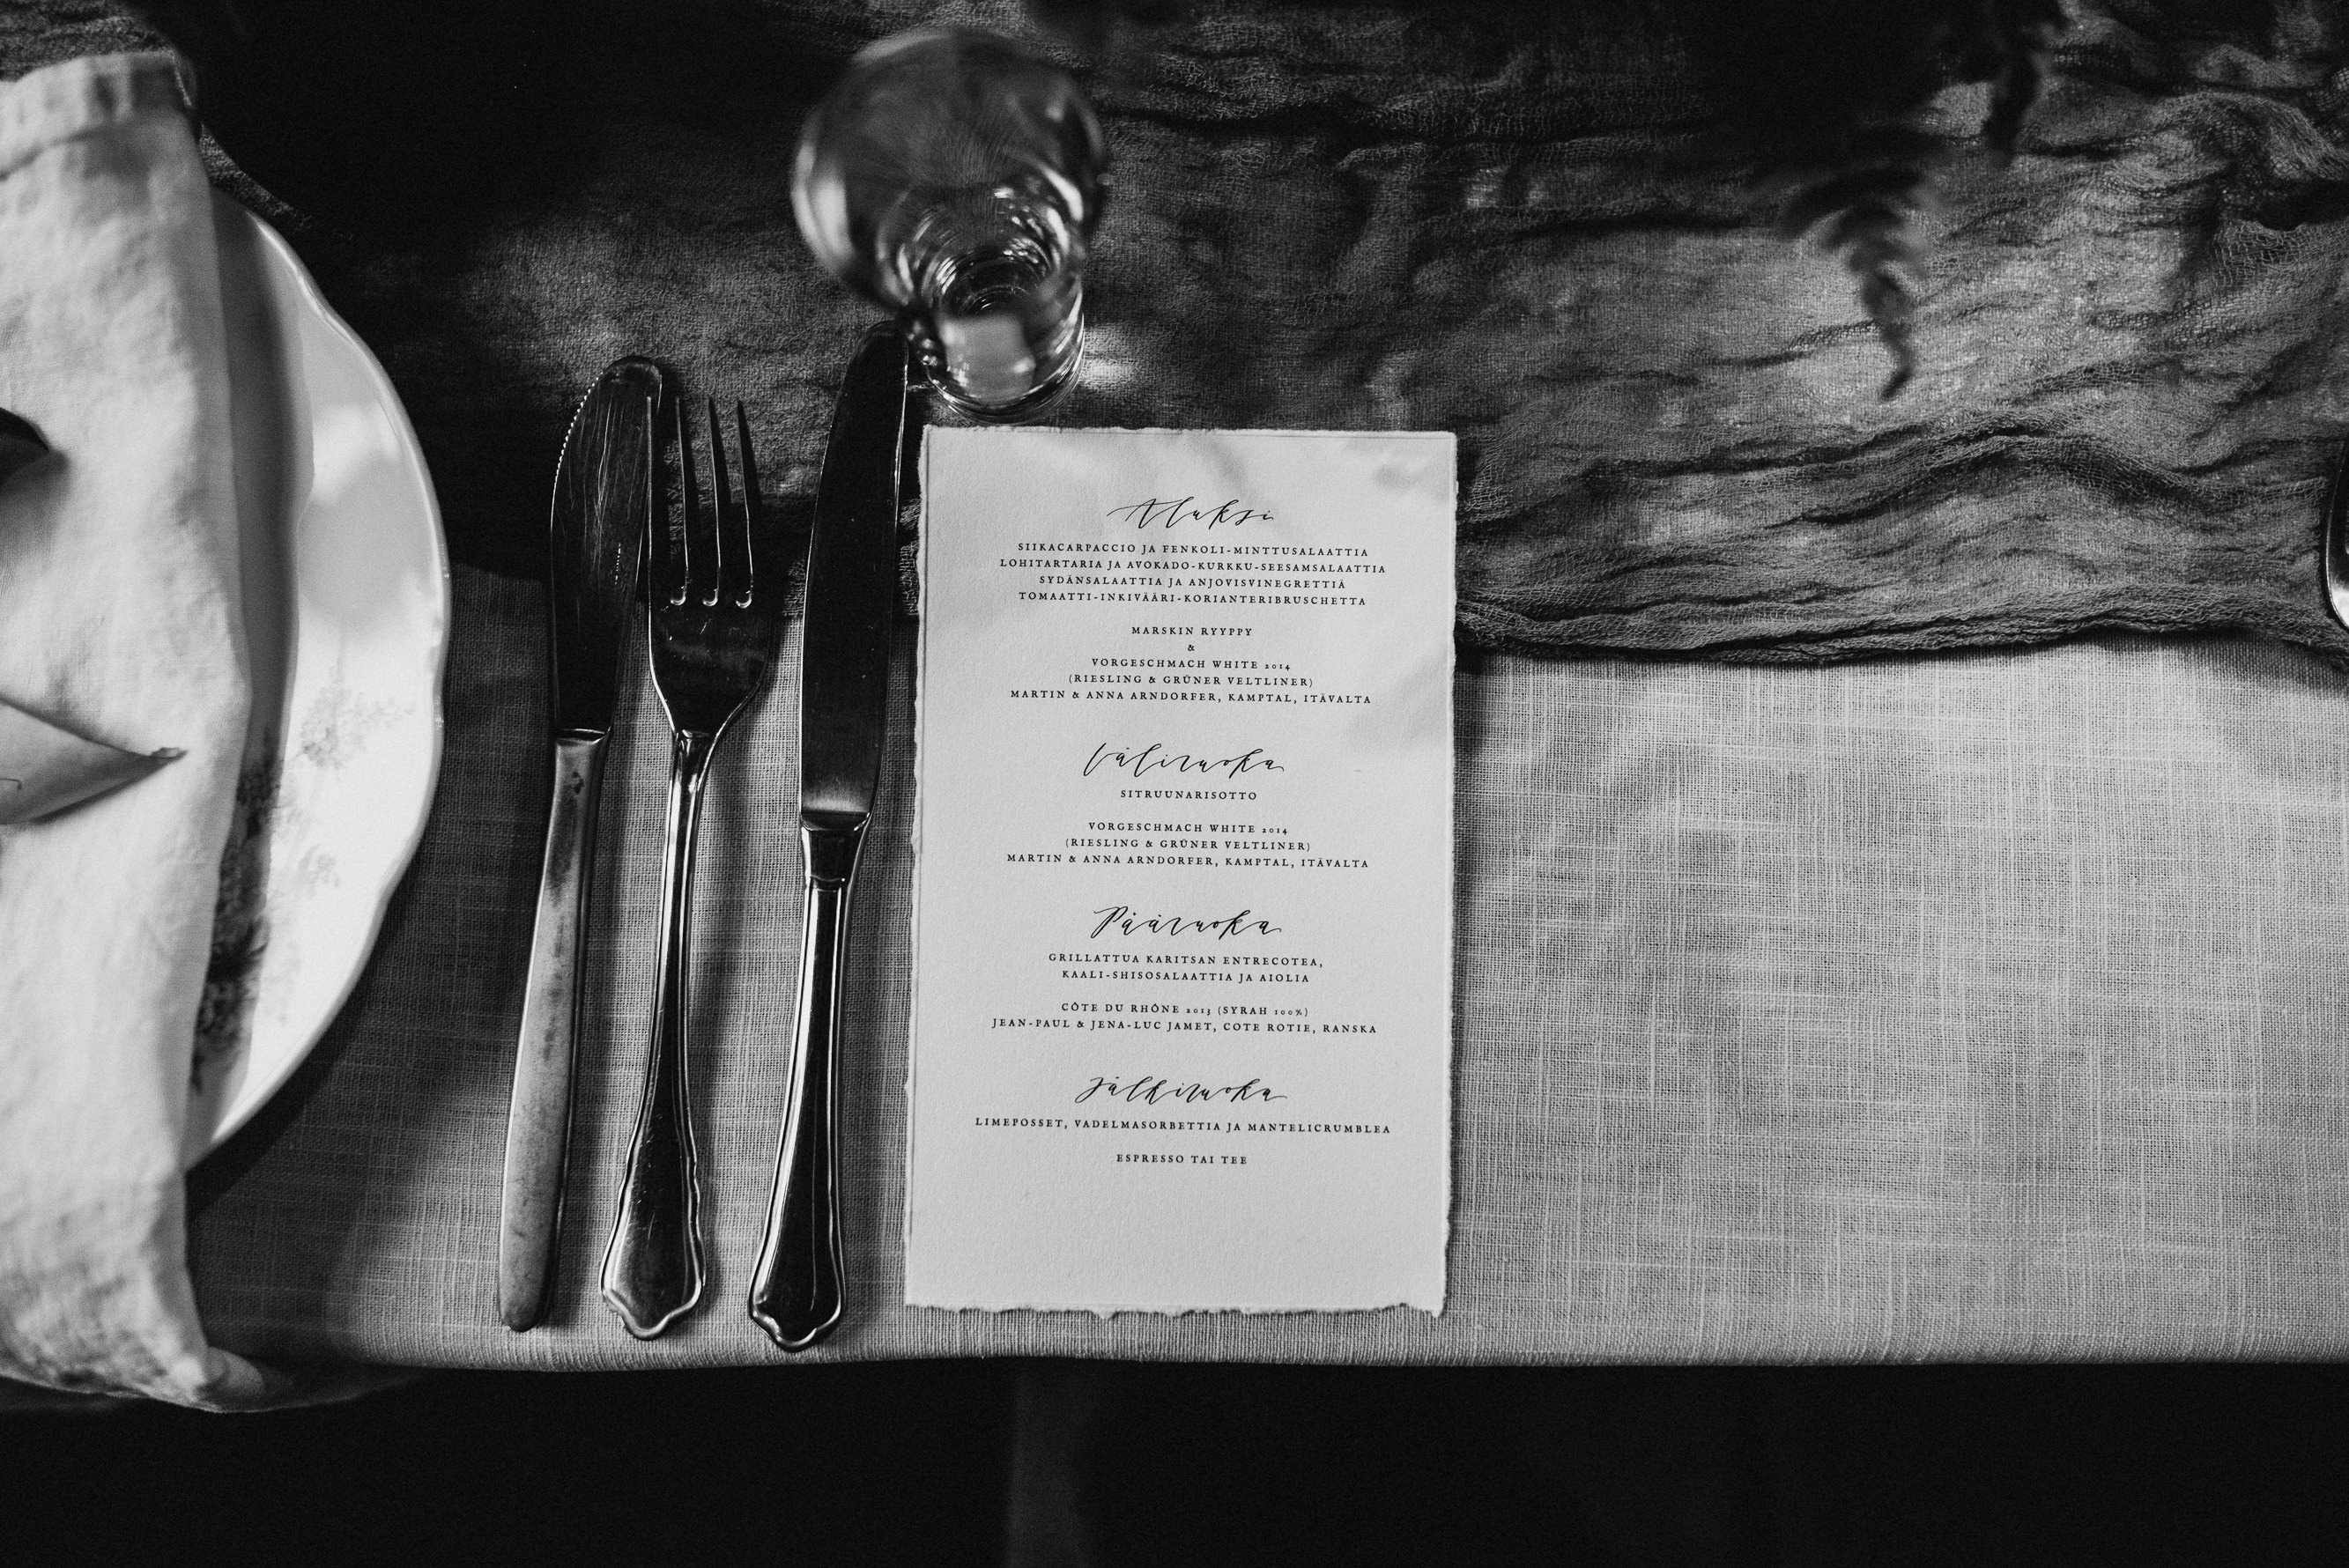 Aluksi
SIIKACARPACCIO JA FENKOLI-MINTTUSALAATTIA
LOHITARTARIA JA AVOKADO-KURKKU-SEESAMSALAATTIA
SYDÄNSALAATTIA JA ANJOVISVINEGRETTIÄ
TOMAATTI-INKIVÄÄRI-KORIANTERIBRUSCHETTA
MARSKIN RYYPPY
&
VORGESCHMACH WHITE 2014
(RIESLING & GRÜNER VELTLINER)
MARTIN & ANNA ARNDORFER, KAMPTAL, ITÄVALTA
Väliruoka
SITRUUNARISOTTO
VORGESCHMACH WHITE 2014
(RIESLING & GRÜNER VELTLINER)
MARTIN & ANNA ARNDORFER, KAMPTAL, ITÄVALTA
Pääruoka
GRILLATTUA KARITSAN ENTRECOTEA,
KAALI-SHISOSALAATTIA JA AIOLIA
CÔTE DU RHÔNE 2013 (SYRAH 100%)
JEAN-PAUL & JENA-LUC JAMET, COTE ROTIE, RANSKA
Jälkiruoka
LIMEPOSSET, VADELMASORBETTIA JA MANTELICRUMBLEA
ESPRESSO TAI TEE